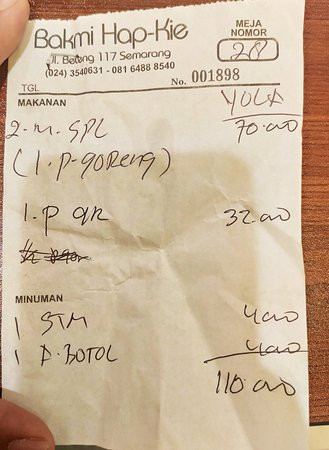 Bakmi Hap-Kie
Jl. Beteng 117 Semarang
(024) 3540631 - 081 6488 8540
MEJA
NOMOR
28
TGL
No. 001898
MAKANAN
YOLA
2. M. SPL 70.000
(1. P-goreng)
1. P gr 32.000
MINUMAN
1 STM 4000
1 P. BOTOL 4000
110.000